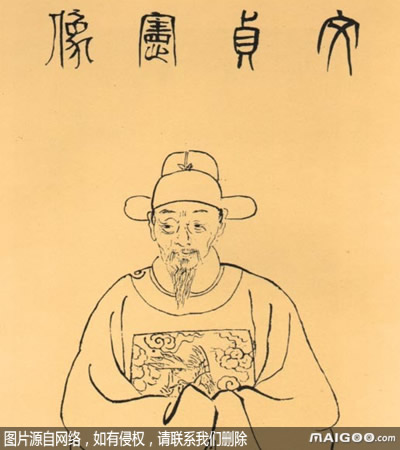 文貞憲像
图片源自网络，如有侵权，请联系我们删除
MAIGOO.com